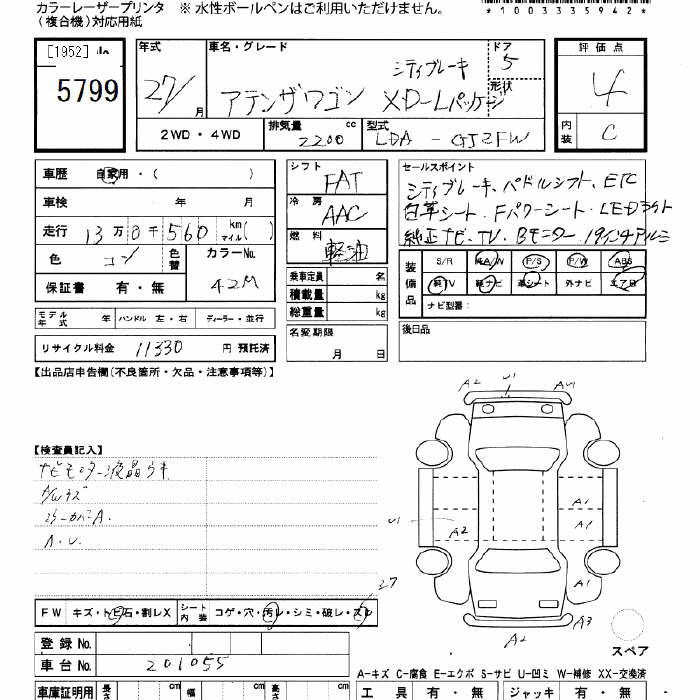 カラーレーザープリンタ ※ 水性ボールペンはご利用いただけません。
(複合機)対応用紙
*1003335942*
[1952]
5799
年式 27/ 月
車名・グレード シティブレーキ ドア 5
アテンザワゴン XD-Lパッケージ 形状
評価点 4
内装 C
2WD・4WD
排気量 2200 cc
型式 LDA-GJ2FW
車歴 自家用・( )
車検 年 月
走行 13万0千560 km マイル( )
色 コン 色替 カラーNo. 42M
保証書 有・無
シフト FAT
冷房 AAC
燃料 軽油
乗車定員 名
積載量 kg
総重量 kg
セールスポイント
シティブレーキ、パドルシフト、ETC
白革シート、Fパワーシート、LEDライト
純正ナビ、TV、Bモニター、19インチアルミ
装備品 S/R 純A/W P/S P/W ABS
純TV 純ナビ 革シート 外ナビ エアB
ナビ型番:
モデル年式 年 ハンドル 左・右 ディーラー・並行
名変期限 月 日
後日品
リサイクル料金 11330 円 預託済
【出品店申告欄(不良箇所・欠品・注意事項等)】
A2 U1 A1
【検査員記入】
ナビモニター液晶ウキ
A/Wキズ
ミラーカバーA.
A.U.
A1
U1 A2 A1
A3
A2
スペア
FW キズ・トビ石・割レX シート内装 コゲ・穴・汚レ・シミ・破レ・スレ
登録 No.
車台 No. 201055
A-キズ C-腐食 E-エクボ S-サビ U-凹ミ W-補修 XX-交換済
車庫証明用 長さ cm 幅 cm 高さ cm 工具 有・無 ジャッキ 有・無